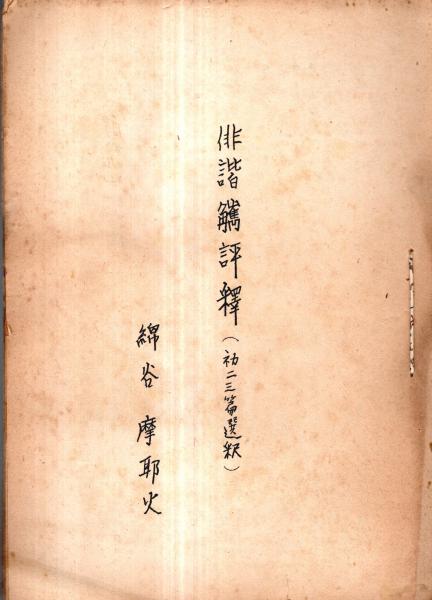 俳諧觿評釋(初二三篇選釈)
綿谷 摩耶火